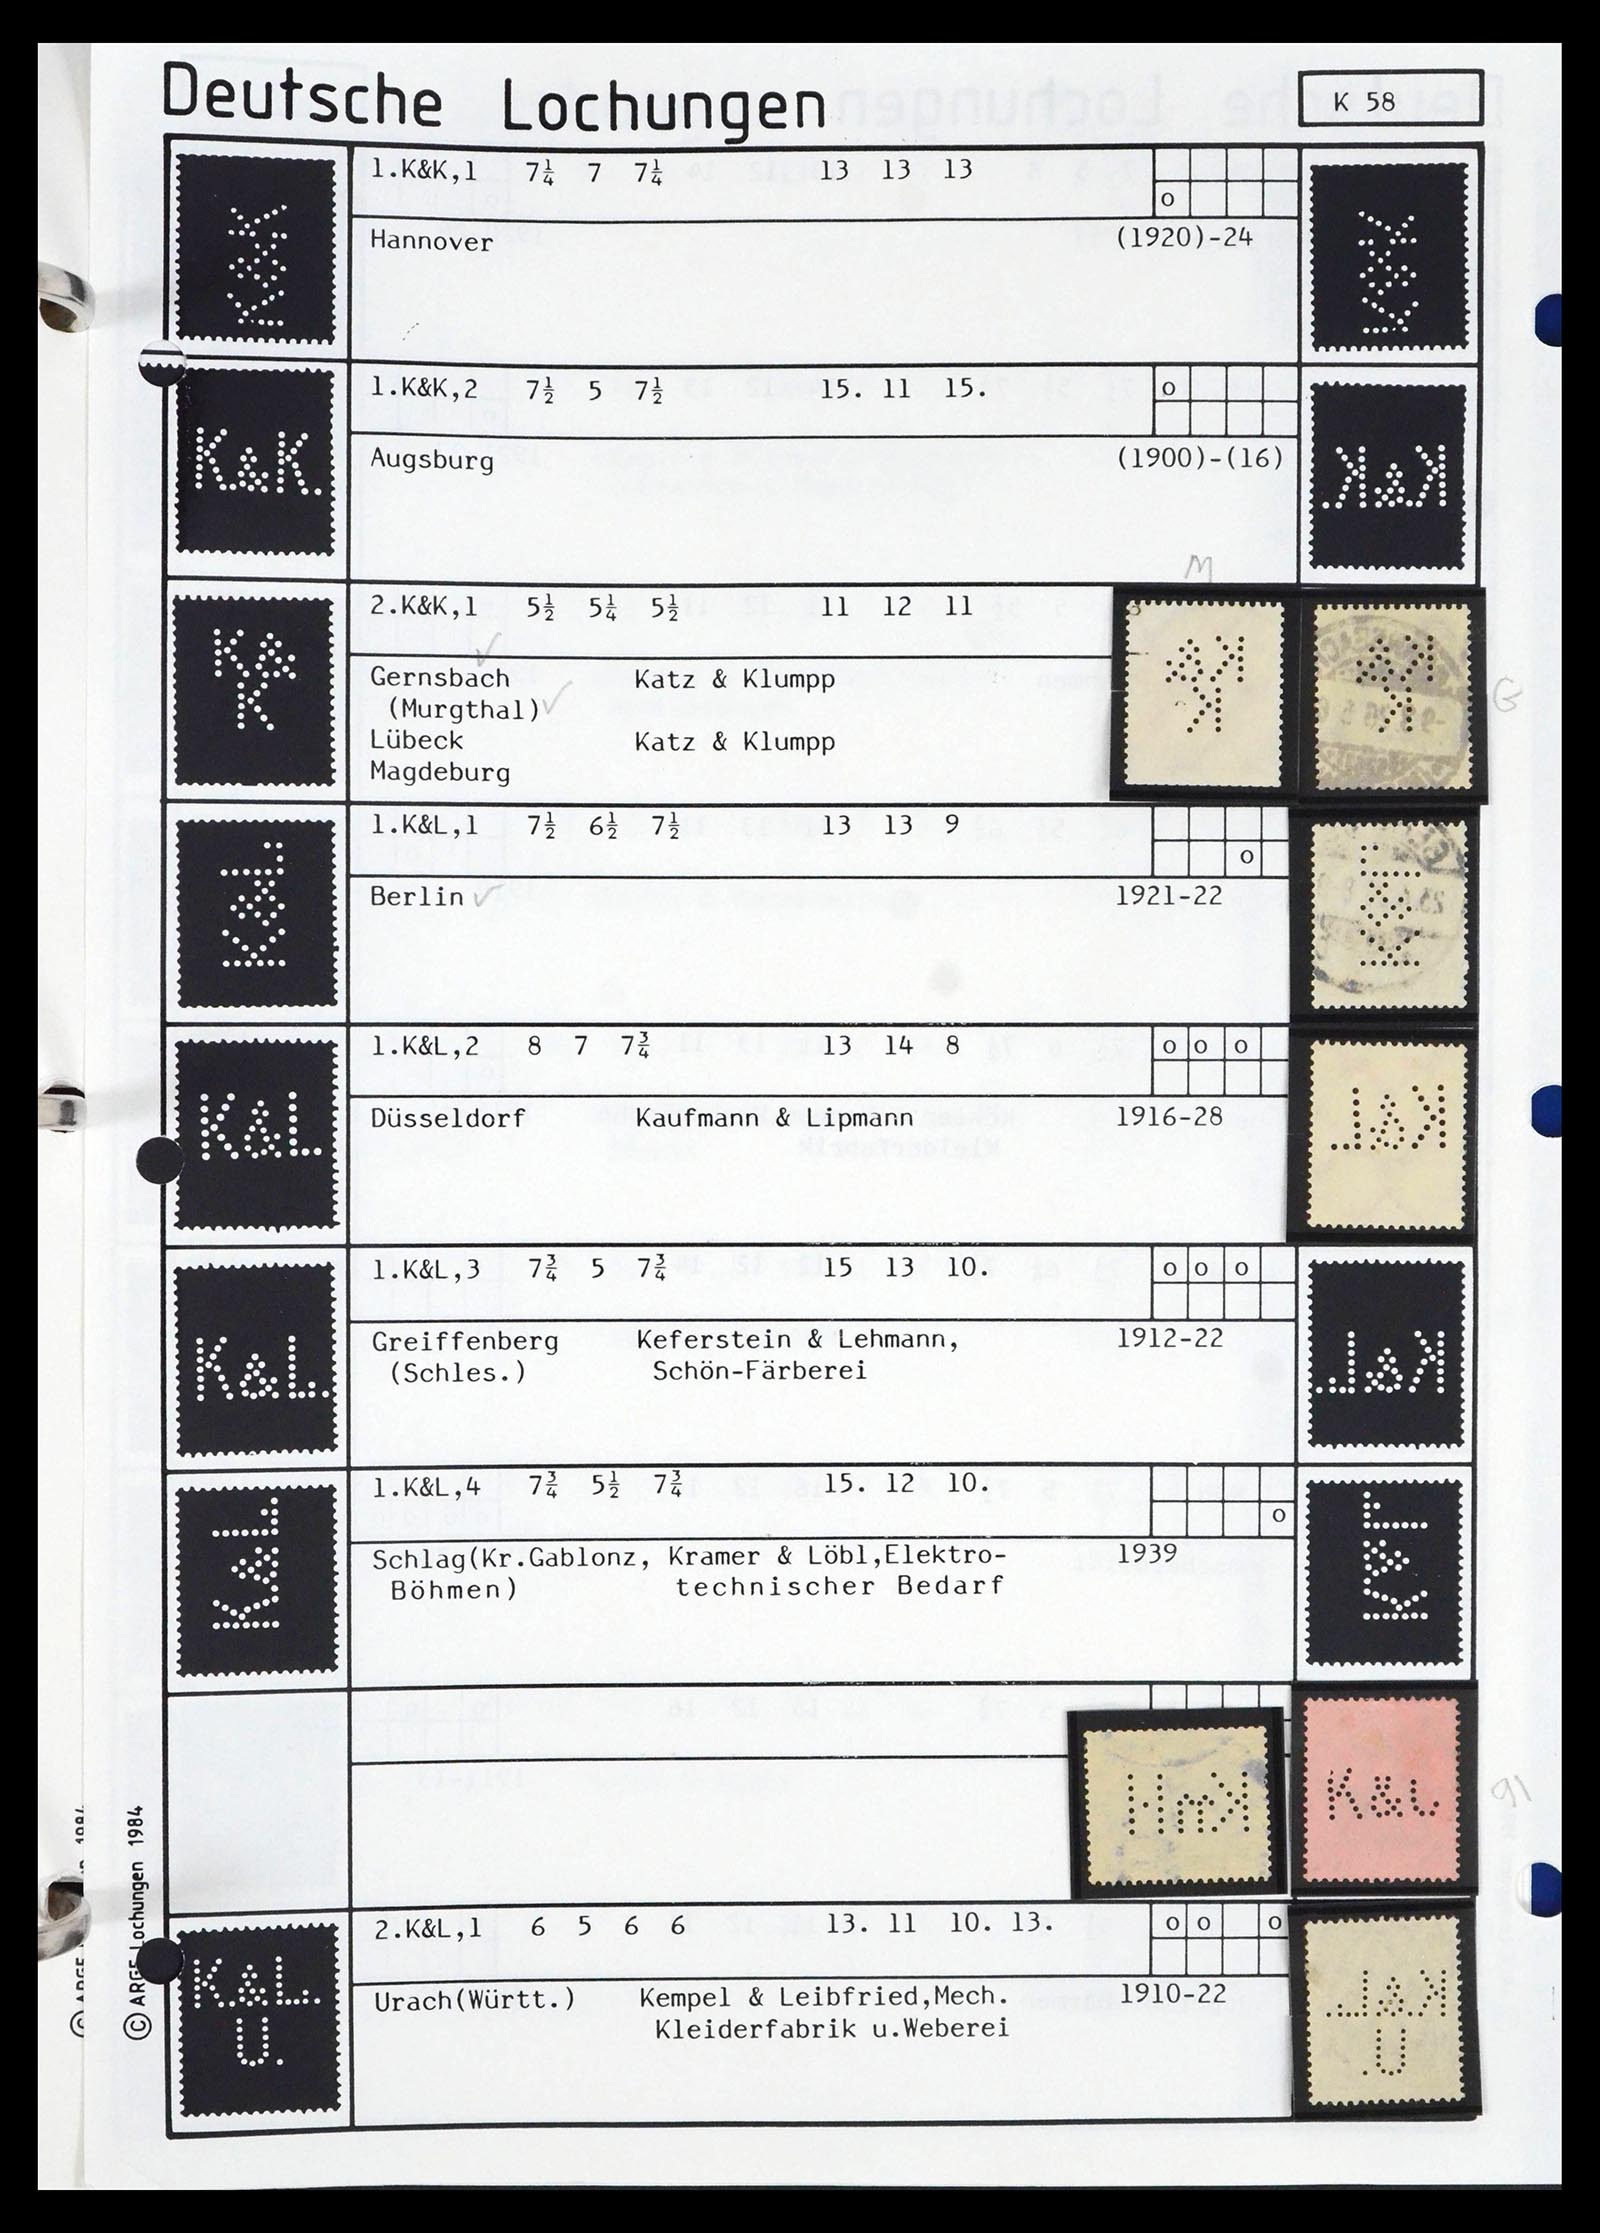 Deutsche Lochungen
K 58
K&K
1.K&K,1 7¼ 7 7¼ 13 13 13
o
Hannover (1920)-24
K&K
K&K.
1.K&K,2 7½ 5 7½ 15. 11 15.
o
Augsburg (1900)-(16)
K&K.
M
K&
K
2.K&K,1 5½ 5¼ 5½ 11 12 11
Gernsbach Katz & Klumpp
(Murgthal)
Lübeck Katz & Klumpp
Magdeburg
K&
K
K&
K
G
K&L.
1.K&L,1 7½ 6½ 7½ 13 13 9
o
Berlin 1921-22
K&L
K&L
1.K&L,2 8 7 7¾ 13 14 8
o o o
Düsseldorf Kaufmann & Lipmann 1916-28
K&L
K&L.
1.K&L,3 7¾ 5 7¾ 15 13 10.
o o o
Greiffenberg Keferstein & Lehmann, 1912-22
(Schles.) Schön-Färberei
K&L.
K&L
1.K&L,4 7¾ 5½ 7¾ 15. 12 10.
o
Schlag(Kr.Gablonz, Kramer & Löbl,Elektro- 1939
Böhmen) technischer Bedarf
K&L
KmH
K&J
91
K.&L.
U.
2.K&L,1 6 5 6 6 13. 11 10. 13.
o o o
Urach(Württ.) Kempel & Leibfried,Mech. 1910-22
Kleiderfabrik u.Weberei
K.&L.
U.
© ARGE Lochungen 1984